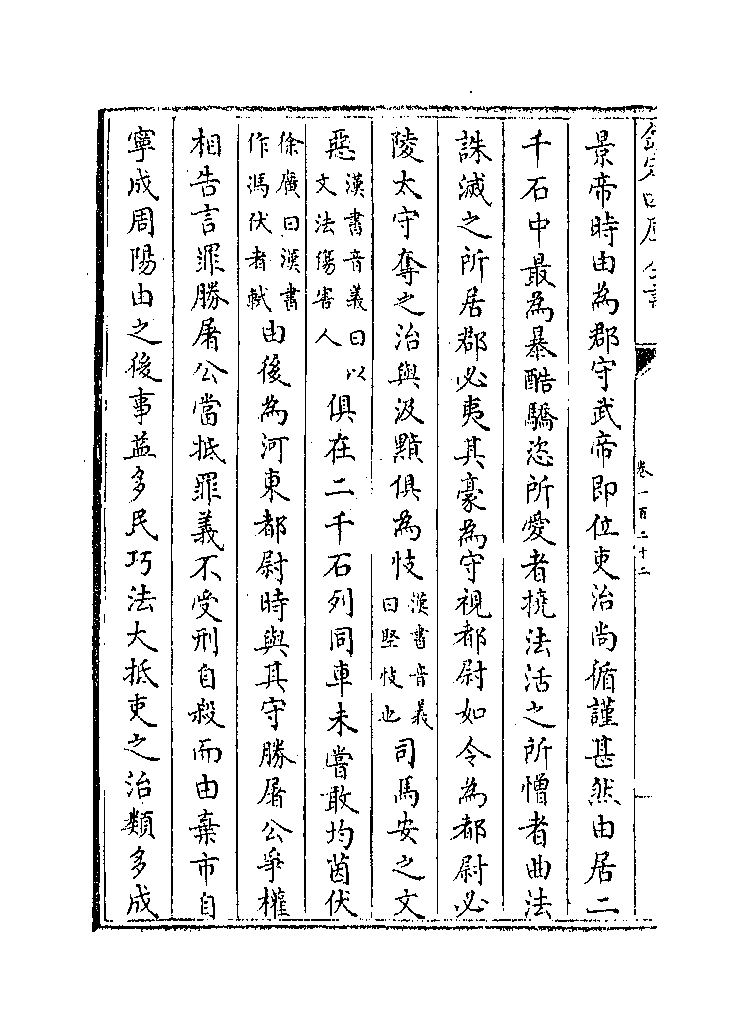 欽定四庫全書
卷一百二十二
景帝時由為郡守武帝即位吏治尚循謹甚然由居二
千石中最為暴酷驕恣所愛者撓法活之所憎者曲法
誅滅之所居郡必夷其豪為守視都尉如令為都尉必
陵太守奪之治與汲黯俱為忮漢書音義曰堅忮也司馬安之文
惡漢書音義曰以文法傷害人俱在二千石列同車未嘗敢均茵伏
徐廣曰漢書作馮伏者軾由後為河東都尉時與其守勝屠公爭權
相告言罪勝屠公當抵罪義不受刑自殺而由棄市自
寧成周陽由之後事益多民巧法大抵吏之治類多成